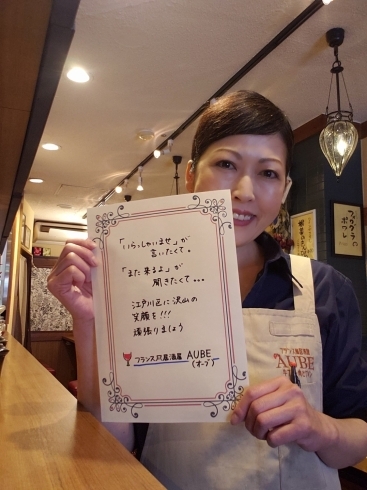 「いらっしゃいませ」が
言いたくて。
「また来るよ」が
聞きたくて...
江戸川区に沢山の
笑顔を!!!
頑張りましょう
フランス風居酒屋 AUBE
(オーブ)
フォアグラ
の
ポワレ
フランス風居酒屋
AUBE